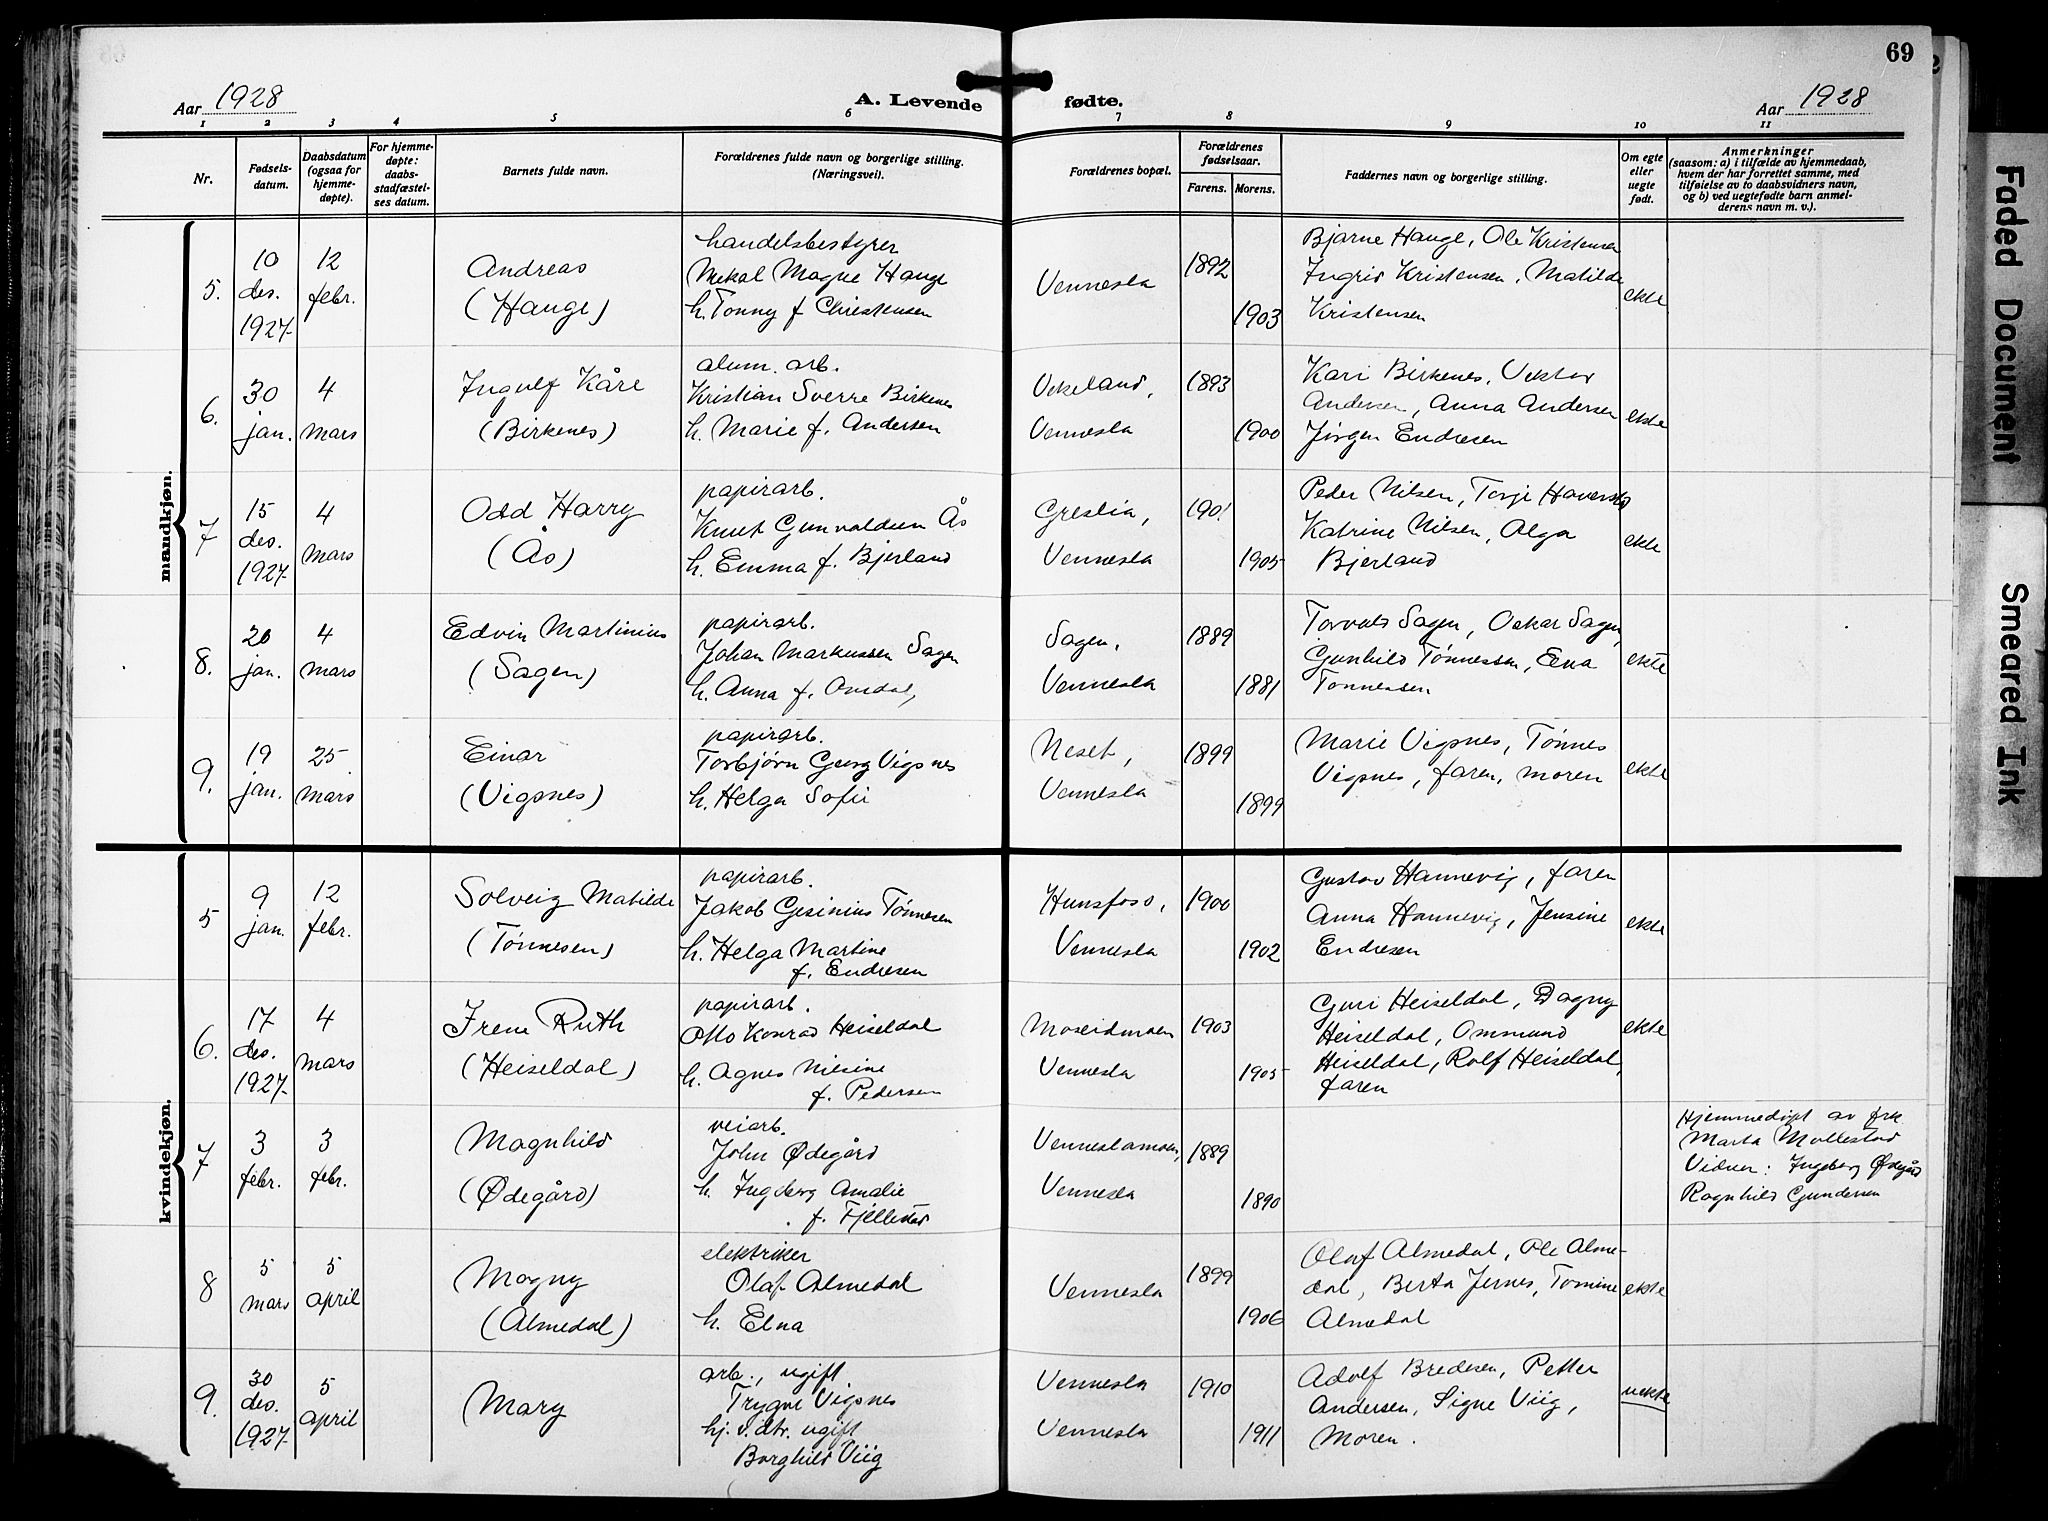 69
Aar 1928
A. Levende fødte.
Aar 1928
1 2 3 4 5 6 7 8 9 10 11
Nr.
Fødsels-
datum.
Daabsdatum
(ogsaa for
hjemme-
døpte).
For hjemme-
døpte:
daabs-
stadfæstel-
ses datum.
Barnets fulde navn.
Forældrenes fulde navn og borgerlige stilling.
(Næringsvei).
Forældrenes bopæl.
Forældrenes
fødselsaar.
Farens. Morens.
Faddernes navn og borgerlige stilling.
Om egte
eller
uegte
født.
Anmerkninger
(saasom: a) i tilfælde av hjemmedaab,
hvem der har forrettet samme, med
tilføielse av to daabsvidners navn,
og b) ved uegtefødte barn anmel-
derens navn m. v.).
mandkjøn.
5.
10
des.
1927
12
febr.
Andreas
(Hauge)
handelsbestyrer
Mikal Magne Hauge
h. Tonny f Christensen
Vennesla
1892
1903
Bjarne Hauge, Ole Kristensen
Ingrid Kristensen, Matilde
Kristensen
ekte
6.
30
jan.
4
mars
Ingulf Kåre
(Birkenes)
alum. arb.
Kristian Sverre Birkenes
h. Marie f. Andersen
Vikeland,
Vennesla
1893
1900
Kari Birkenes, Viktor
Andersen, Anna Andersen
Jørgen Endresen
ekte
7
15
des.
1927
4
mars
Odd Harry
(Ås)
papirarb.
Knut Gunvaldsen Ås
h. Emma f. Bjerland
Greslia,
Vennesla
1901
1905
Peder Nilsen, Torje
Katrine Nilsen, Olga
Bjerland
ekte
8.
20
jan.
4
mars
Edvin Martinius
(Sagen)
papirarb.
Johan Markussen Sagen
h. Anna f. Omdal,
Sagen,
Vennesla
1889
1881
Torvals Sagen, Oskar Sagen,
Gunhild Tønnessen, Ena
Tønnessen
ekte
9.
19
jan.
25
mars
Einar
(Vigsnes)
papirarb.
Torbjørn Georg Vigsnes
h. Helga Sofie
Neset,
Vennesla
1899
1899
Marie Vigsnes, Tønnes
Vigsnes, faren, moren
ekte
kvindekjøn.
5
9
jan.
12
febr.
Solveig Matilde
(Tønnesen)
papirarb.
Jakob Gesinius Tønnesen
h. Helga Martine
f. Endresen
Hunsfoss,
Vennesla
1900
1902
Gustav Hannevig, faren
Anna Hannevig, Jensine
Endresen
ekte
6.
17
des.
1927
4
mars
Irene Ruth
(Heiseldal)
papirarb.
Otto Konrad Heiseldal
h. Agnes Nilsine
f. Pedersen
Moseidmoen
Vennesla
1903
1905
Guri Heiseldal, Dagny
Heiseldal, Ommund
Heiseldal, Rolf Heiseldal,
faren
ekte
7
3
febr.
3
febr.
Magnhild
(Ødegård)
veiarb.
John Ødegård
h. Ingberg Amalie
f. Fjellestad
Venneslamoen,
Vennesla
1889
1890
Hjemmedøpt av frk
Marta Mollestad
Vidner: Ingeberg Ødegård
Ragnhild Gundersen
8
5
mars
5
april
Magny
(Almedal)
elektriker
Olaf Almedal
h. Elna
Vennesla
1899
1906
Olaf Almedal, Ole Alme-
dal, Berta Jernes, Tomine
Almedal
ekte
9.
30
des.
1927
5
april
Mary
arb., ugift
Trygve Vigsnes
hj. v. dtr. ugift
Borghild Viig
Vennesla
Vennesla
1910
1911
Adolf Bredesen, Petter
Andersen, Signe Viig,
Moren.
uekte
Faded Document
Smeared Ink